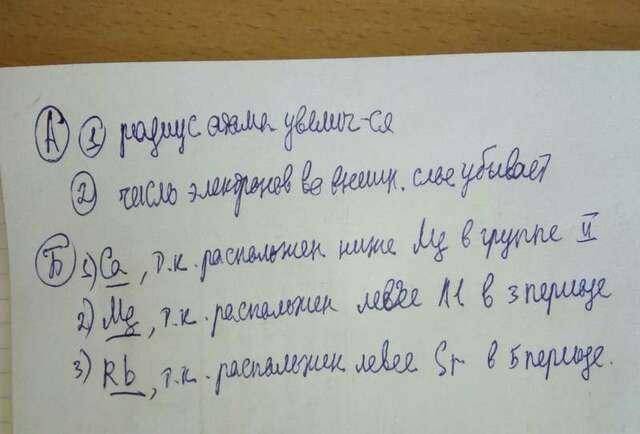 А 1 радиус атома увелич-ся
2 число электронов во внешн. слое убывает
Б 1) Ca, т.к. расположен ниже Mg в группе II
2) Mg, т.к. расположен левее Al в 3 периоде
3) Rb, т.к. расположен левее Sr в 5 периоде.